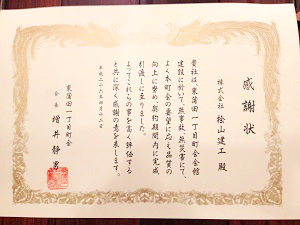 感謝状
株式会社 桧山建工 殿
貴社は、東蒲田一丁目町会会館
建設に於いて、無事故、無災害にて、
よく本町会の要望に応え品質の
向上に努め、契約期間内に完成
引渡しに至りました。
よってこれらの事を高く評価する
と共に深く感謝の意を表します。
平成二十六年四月二十二日
東蒲田一丁目町会
会長 増井静男